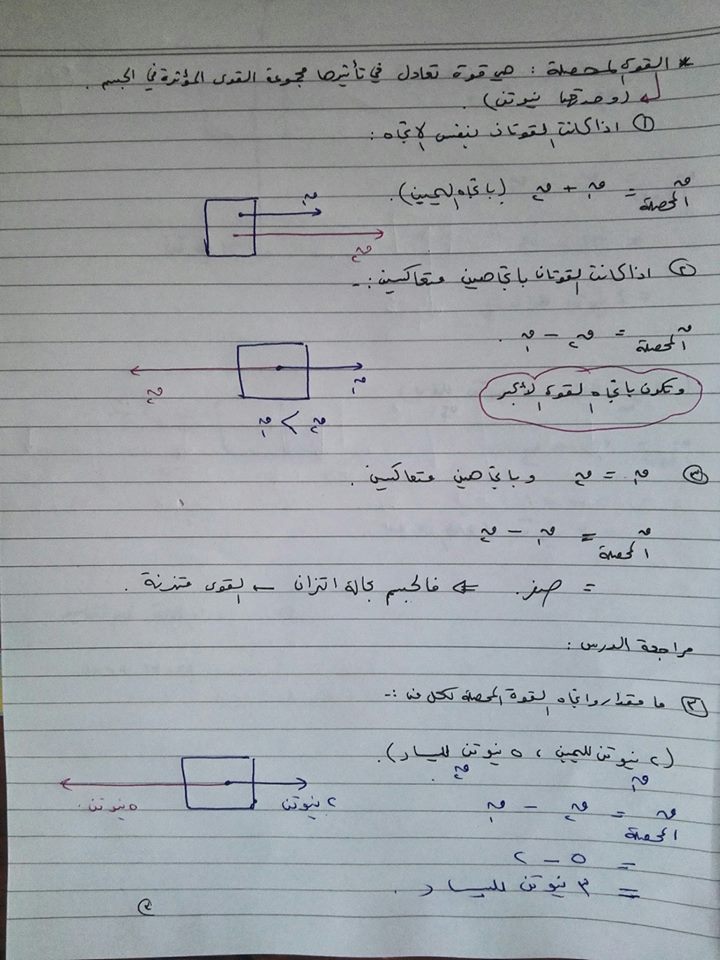 * القوى المحصلة : هي قوة تعادل في تأثيرها مجموعة القوى المؤثرة في الجسم .
(وحدتها نيوتن) .
① اذا كانت القوتان بنفس الاتجاه :
ق المحصلة = ق١ + ق٢ (باتجاه اليمين) .
ق١
ق٢
② اذا كانت القوتان باتجاهين متعاكسين :-
ق المحصلة = ق٢ - ق١ .
ق٢
ق١
وتكون باتجاه القوة الأكبر
ق٢ > ق١
③ ق١ = ق٢ وباتجاهين متعاكسين .
ق المحصلة = ق١ - ق٢
= صفر . ⇐ فالجسم بحالة اتزان ← القوى متزنة .
مراجعة الدرس :
③ ما مقدار واتجاه القوة المحصلة لكل من :-
(٢ نيوتن لليمين ، ٥ نيوتن لليسار) .
ق١ ق٢
٢ نيوتن
٥ نيوتن
ق المحصلة = ق٢ - ق١
= ٥ - ٢
= ٣ نيوتن لليسار .